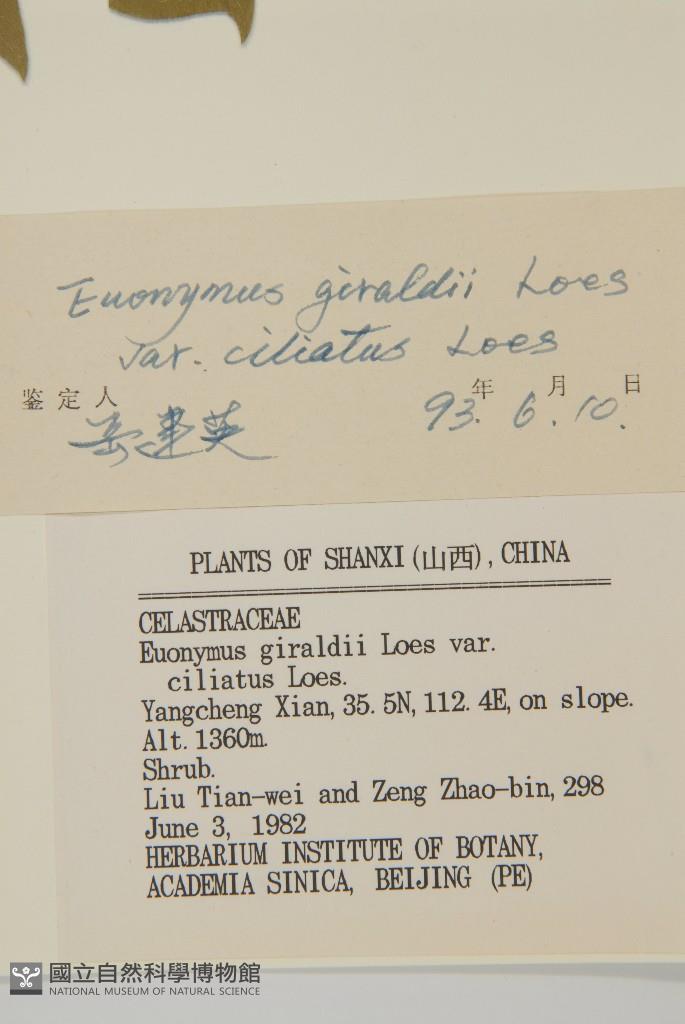 Euonymus giraldii Loes
var. ciliatus Loes
鉴定人 年 月 日
岳建英 93. 6. 10.
PLANTS OF SHANXI (山西), CHINA
CELASTRACEAE
Euonymus giraldii Loes var.
ciliatus Loes.
Yangcheng Xian, 35.5N, 112.4E, on slope.
Alt. 1360m.
Shrub.
Liu Tian-wei and Zeng Zhao-bin, 298
June 3, 1982
HERBARIUM INSTITUTE OF BOTANY,
ACADEMIA SINICA, BEIJING (PE)
國立自然科學博物館
NATIONAL MUSEUM OF NATURAL SCIENCE